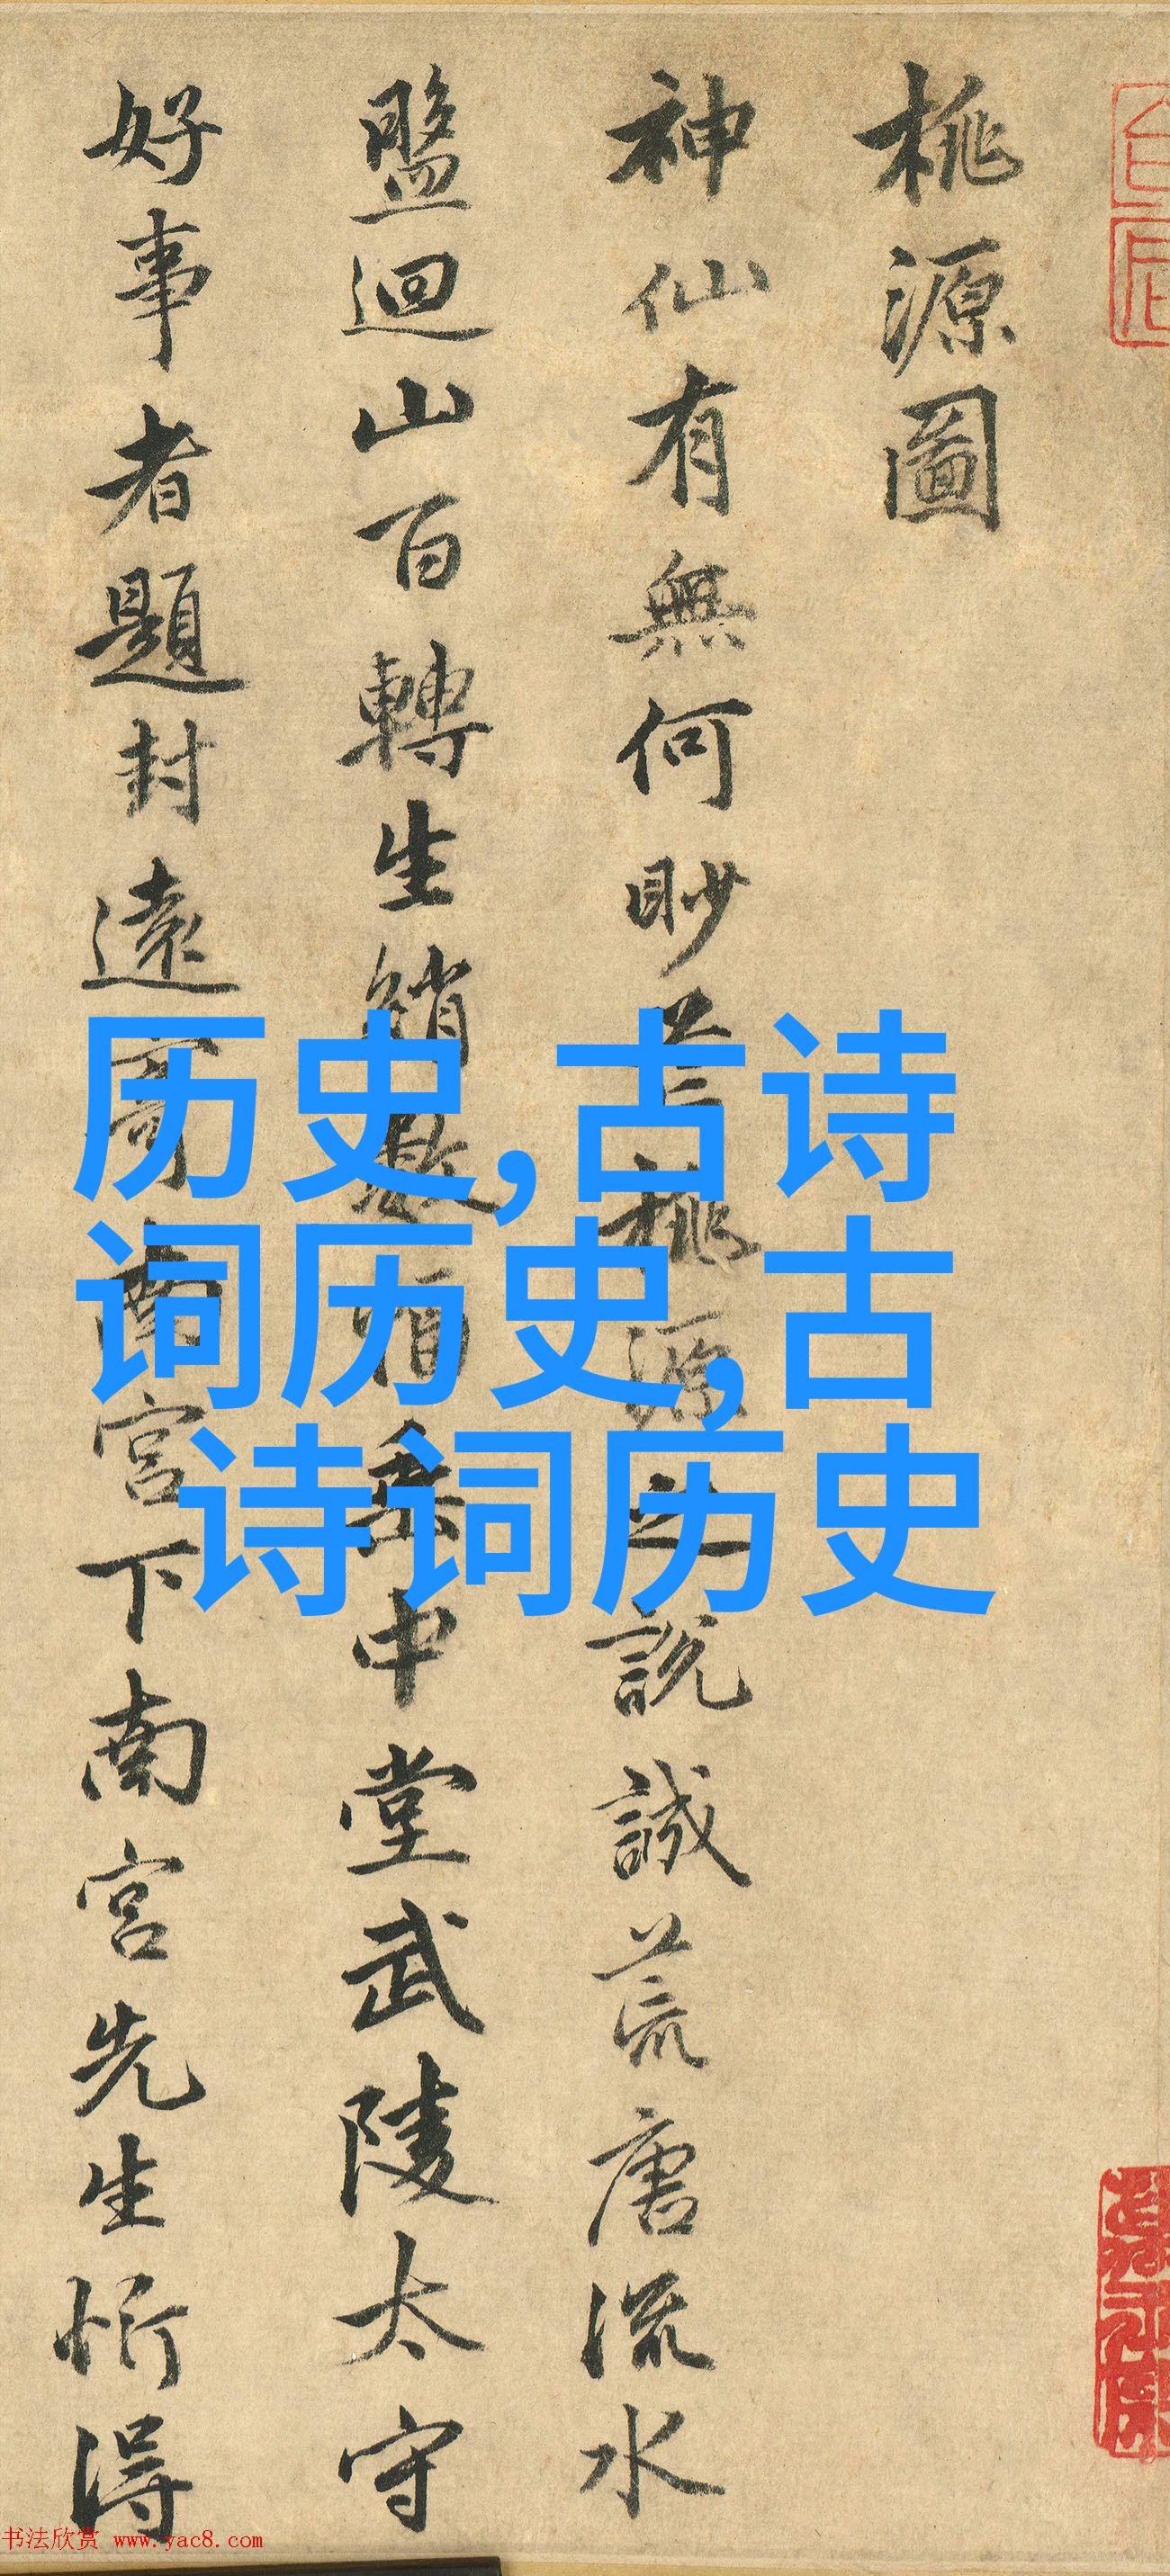 桃源圖
神仙有無何眇芒桃源之說誠荒唐流水
盤迴山百轉生綃數幅垂中堂武陵太守
好事者題封遠寄南宮下南宮先生忻得
历史,古诗
词历史,古
诗词历史
书法欣赏 www.yac8.com